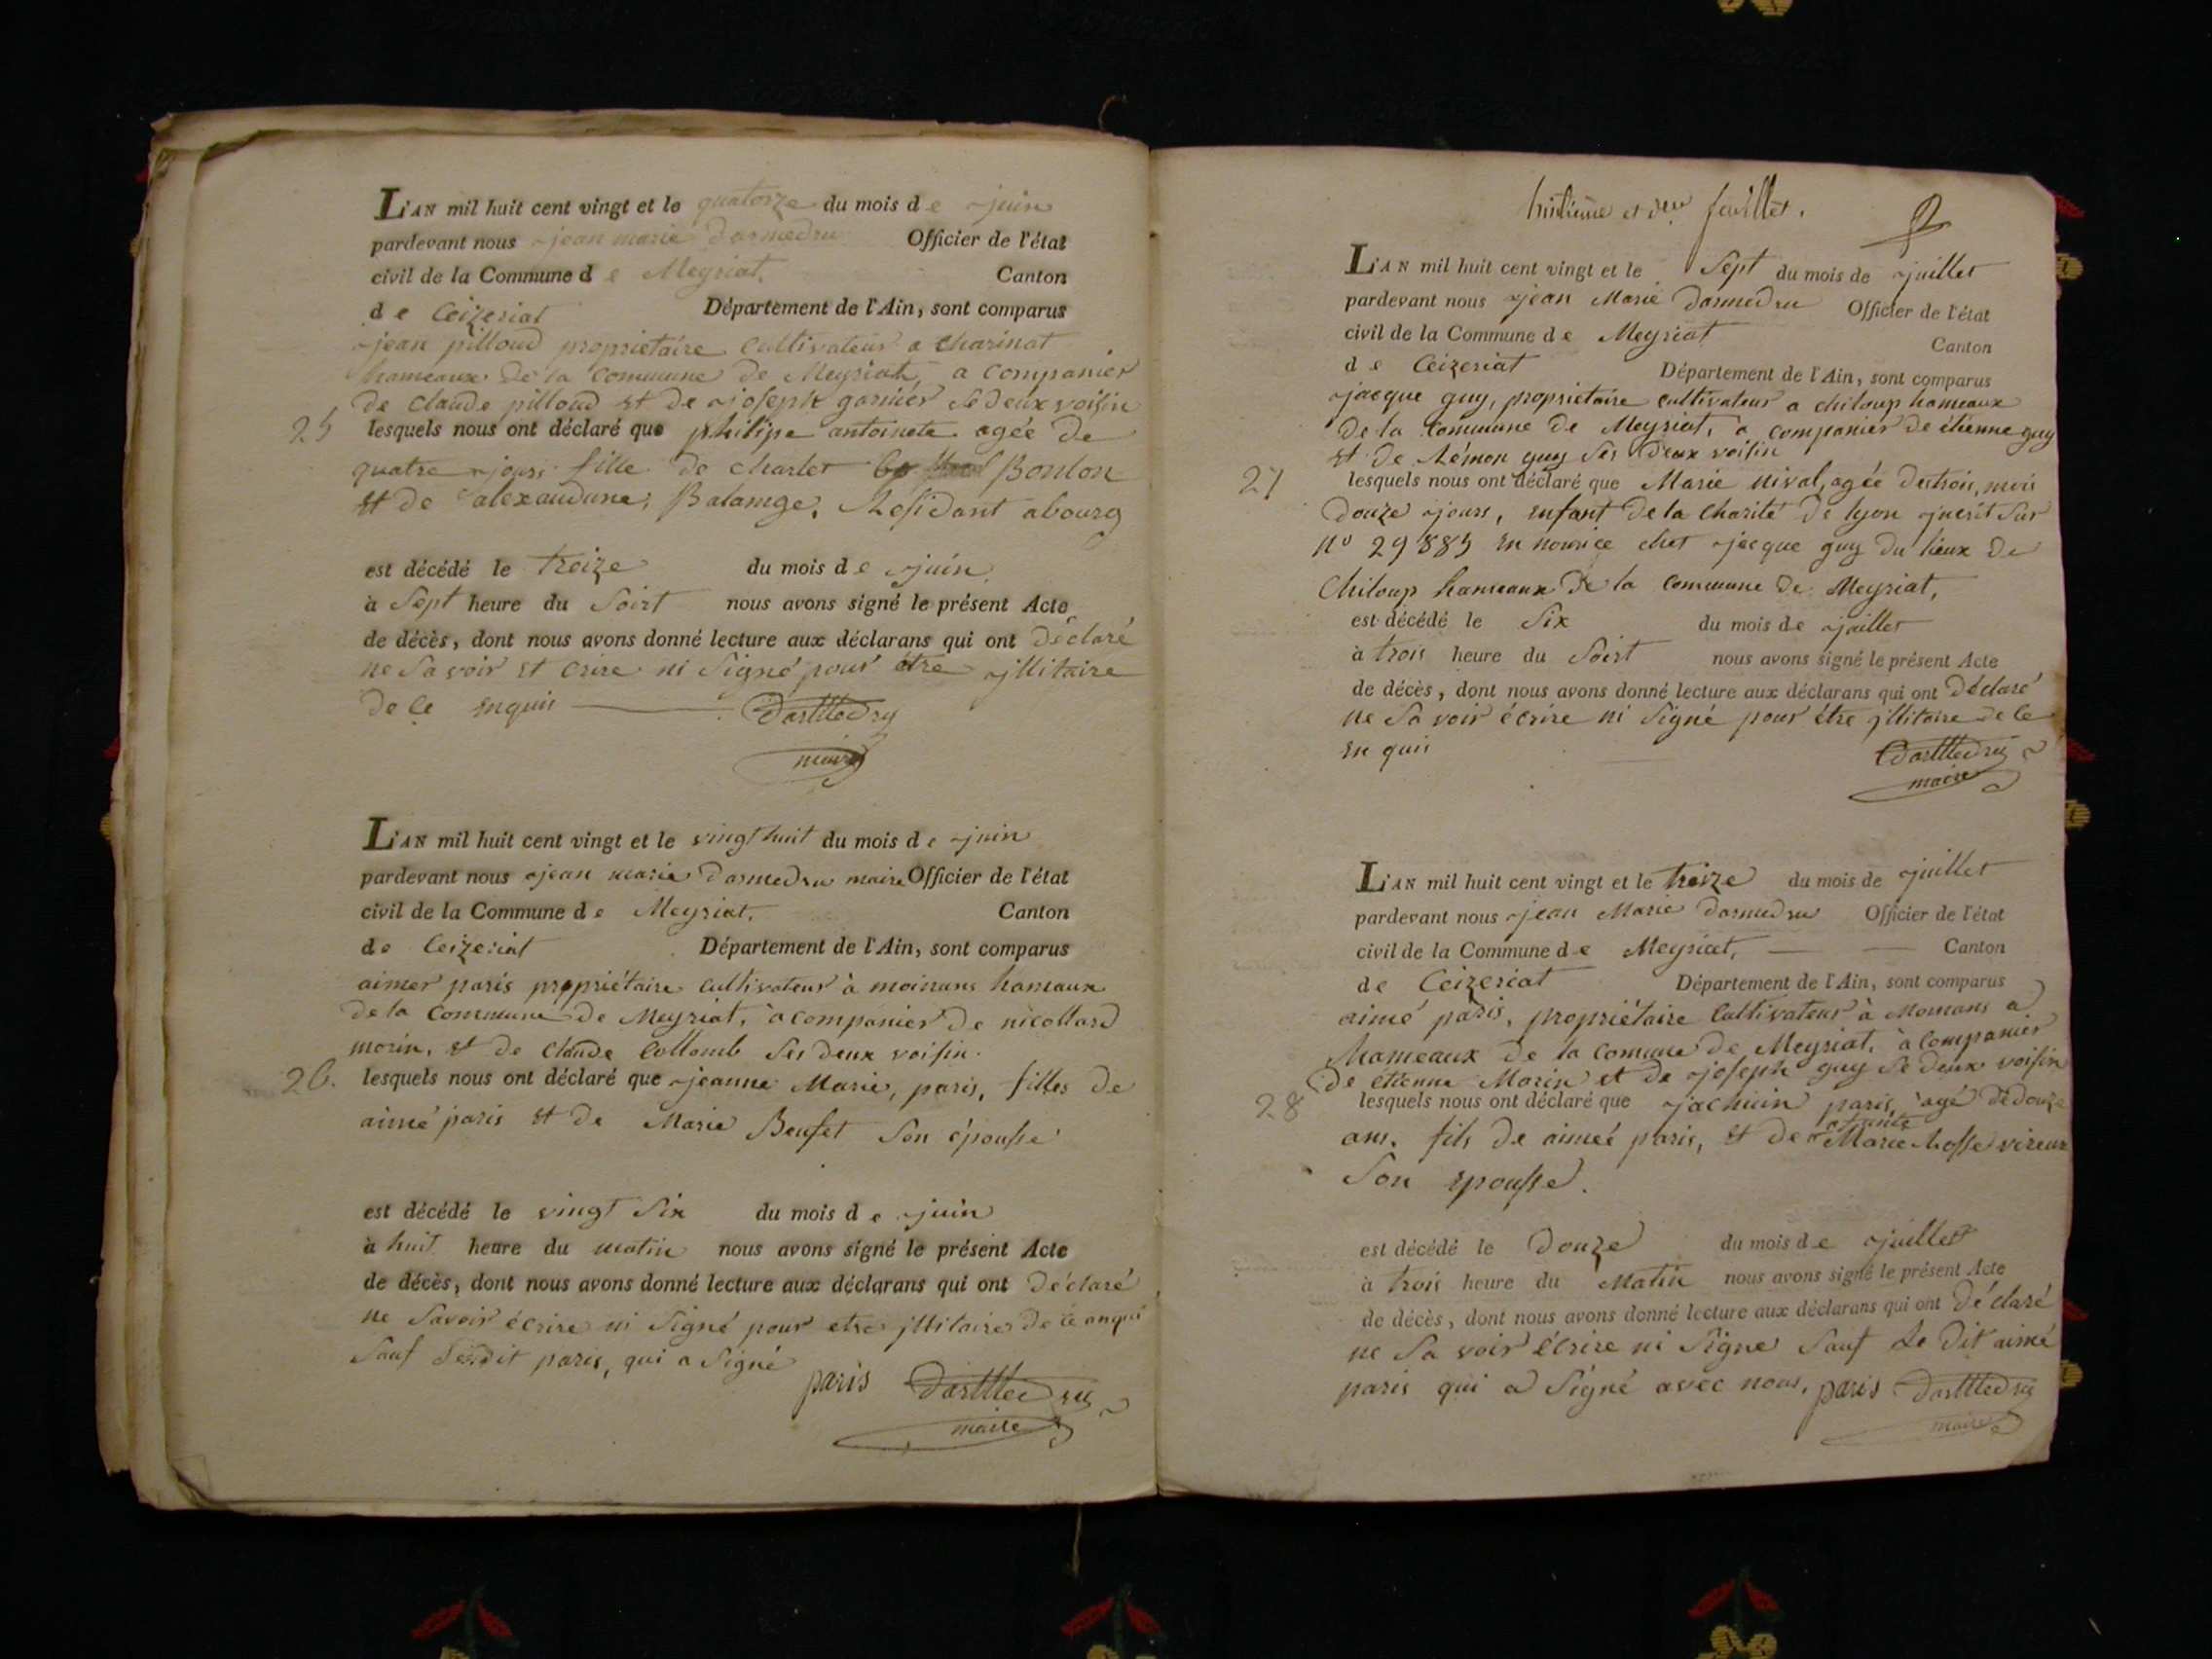 L'AN mil huit cent vingt et le quatorze du mois de juin
pardevant nous jean marie darmedru Officier de l'état
civil de la Commune de Meyriat. Canton
de Ceizeriat Département de l'Ain, sont comparus
jean pilloud proprietaire cultivateur a Charinat
hameaux de la commune de Meyriat, a companier
de claude pilloud et de joseph garnier se deux voisin
25 lesquels nous ont déclaré que philipe antoinete agée de
quatre jours fille de charlet Bonlon
et de alexandrine, Balange, Residant a bourg
est décédé le treize du mois de juin
à Sept heure du Soirt nous avons signé le présent Acte
de décès, dont nous avons donné lecture aux déclarans qui ont déclaré
ne Savoir et crire ni Signé pour être jllitaire
de ce enquis darmedru
maire
L'AN mil huit cent vingt et le vingt huit du mois de juin
pardevant nous jean marie darmedru maire Officier de l'état
civil de la Commune de Meyriat. Canton
de Ceizeriat Département de l'Ain, sont comparus
aimer paris propriétaire cultivateur à moinans hameaux
de la Commune de Meyriat, acompanier de nicollard
morin, et de claude Collomb ses deux voisin.
26. lesquels nous ont déclaré que jeanne Marie, paris, filles de
aimé paris et de Marie Beufet Son épousse
est décédé le vingt Six du mois de juin
à huit heure du matin nous avons signé le présent Acte
de décès, dont nous avons donné lecture aux déclarans qui ont déclaré
ne Savoir écrire ni Signé pour etre jllitaire de ce enquis
Sauf paris, qui a Signé
paris darmedru
maire
huitieme et der feuillet.
L'AN mil huit cent vingt et le Sept du mois de juillet
pardevant nous jean Marie darmedru Officier de l'état
civil de la Commune de Meyriat Canton
de Ceizeriat Département de l'Ain, sont comparus
jacque guy, proprietaire cultivateur a chiloup hameaux
de la Commune de Meyriat, a companier de étienne guy
et de Rémon guy Ses deux voisin
27 lesquels nous ont déclaré que Marie nival, agée de trois, mois
douze jours, enfant de la Charité de lyon jnscrit Sur
no 29885 en nourice chet jacque guy du lieux de
Chiloup hameaux de la commune de Meyriat,
est décédé le Six du mois de juillet
à trois heure du Soirt nous avons signé le présent Acte
de décès, dont nous avons donné lecture aux déclarans qui ont déclaré
ne Savoir écrire ni Signé pour être jllitaire de ce
en quis darmedru
maire
L'AN mil huit cent vingt et le treize du mois de juillet
pardevant nous jean Marie darmedru Officier de l'état
civil de la Commune de Meyriat, Canton
de Ceizeriat Département de l'Ain, sont comparus
aimé paris, propriétaire Cultivateur à Moinans a
hameaux de la comune de Meyriat, à companier
de étienne Morin et de joseph guy Se deux voisin
28 lesquels nous ont déclaré que jachuin paris, agé de douze
ans. fils de aimeé paris, et de Marie
Son epousse.
est décédé le douze du mois de juillet
à trois heure du Matin nous avons signé le présent Acte
de décès, dont nous avons donné lecture aux déclarans qui ont déclaré
ne Savoir écrire ni Signe Sauf Le dit aimé
paris qui a Signé avec nous, paris darmedru
maire